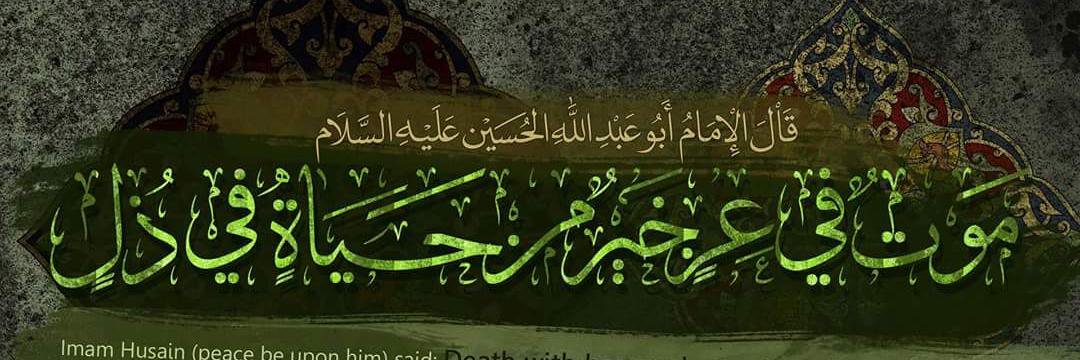 قَالَ الْإِمَامُ أَبُو عَبْدِ اللَّهِ الْحُسَيْن عَلَيهِ السَّلَام
مَوتٌ فِي عِزٍ خَيرٌ مِن حَيَاةٍ فِي ذُلٍ
Imam Husain (peace be upon him) said: Death with